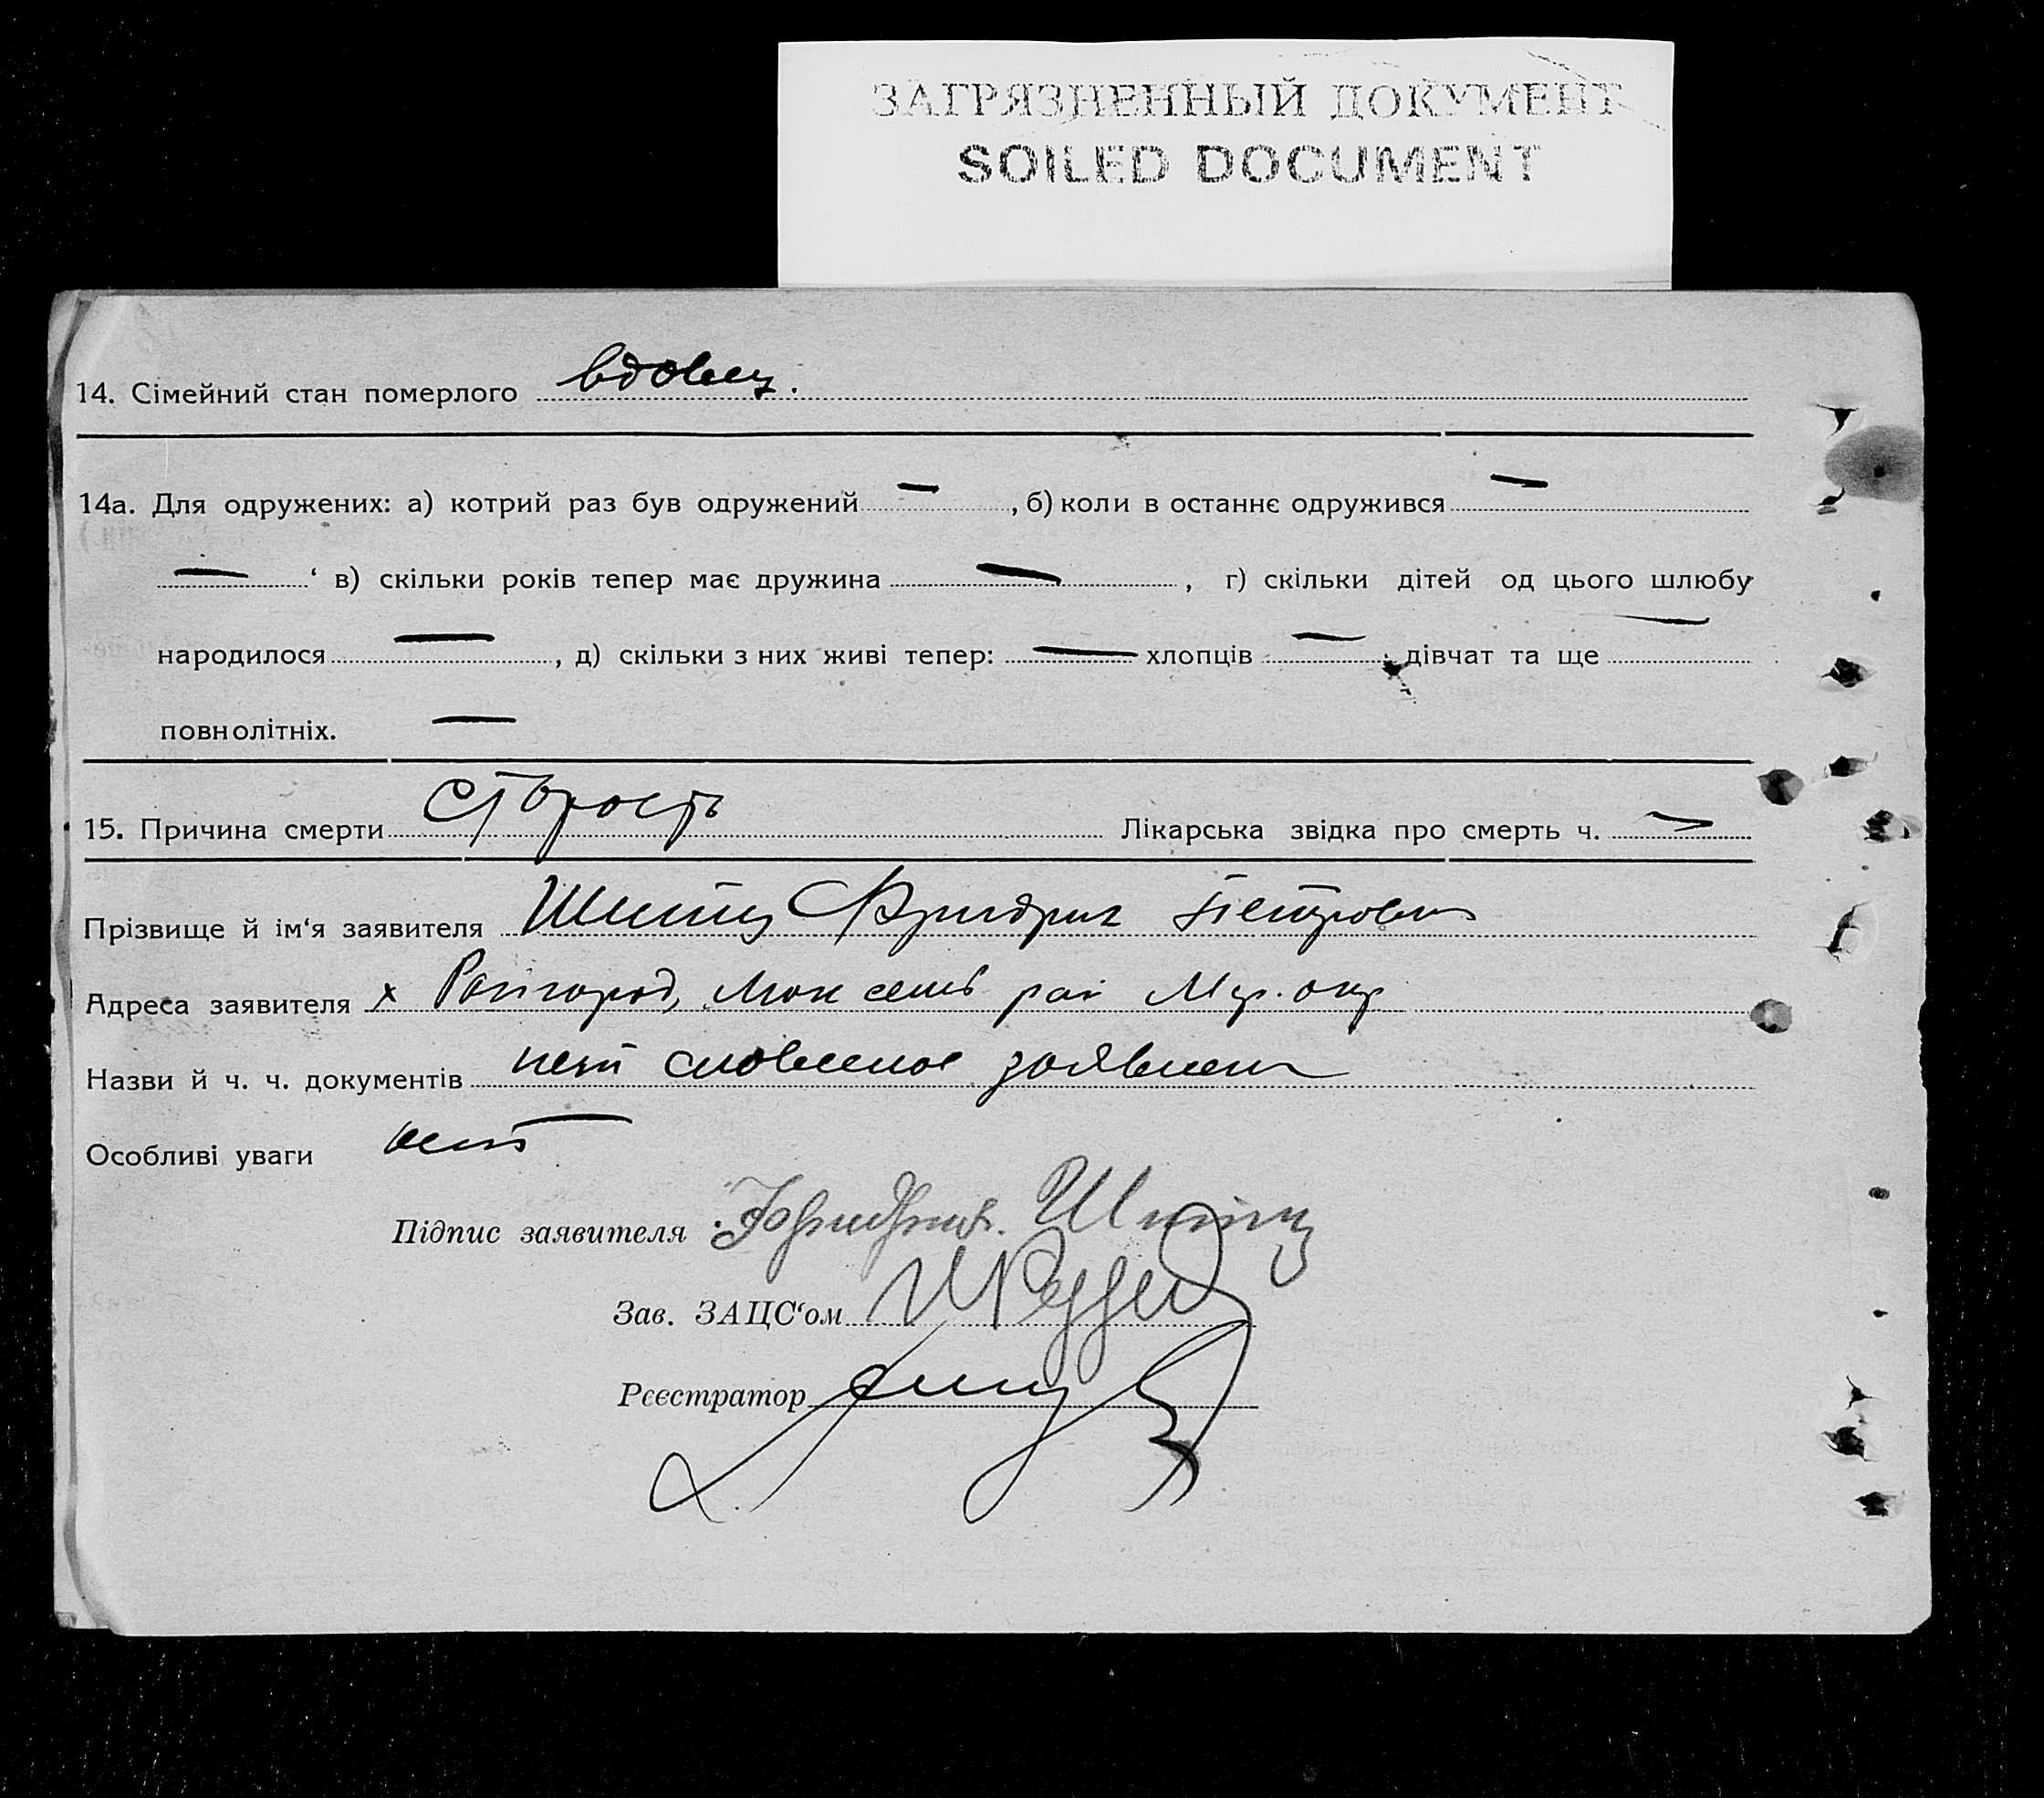 ЗАГРЯЗНЕННЫЙ ДОКУМЕНТ
SOILED DOCUMENT
14. Сімейний стан померлого вдовец.
14а. Для одружених: а) котрий раз був одружений —, б) коли в останнє одружився —
— ‘ в) скільки років тепер має дружина —, г) скільки дітей од цього шлюбу
народилося —, д) скільки з них живі тепер: — хлопців — дівчат та ще —
повнолітніх. —
15. Причина смерти старость Лікарська звідка про смерть ч. —
Прізвище й ім‘я заявителя Фридрих Петрович
Адреса заявителя х Райгород, рай
Назви й ч. ч. документів нет словесное
Особливі уваги нет
Підпис заявителя
Зав. ЗАЦС‘ом
Реєстратор